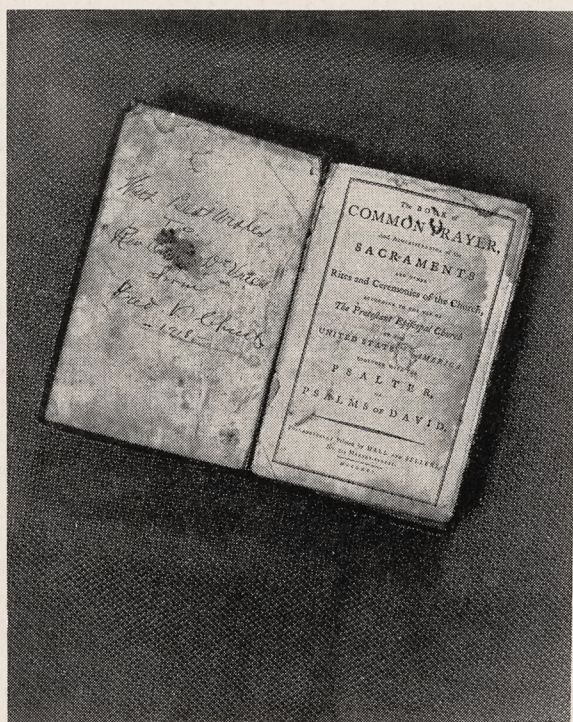 With Best Wishes
To
from
Fred
The BOOK of
COMMON PRAYER,
And ADMINISTRATION of the
SACRAMENTS
AND OTHER
Rites and Ceremonies of the Church,
ACCORDING TO THE USE OF
The Protestant Episcopal Church
IN THE
UNITED STATES OF AMERICA:
TOGETHER WITH THE
PSALTER,
OR
PSALMS OF DAVID.
Printed by HALL AND SELLERS,